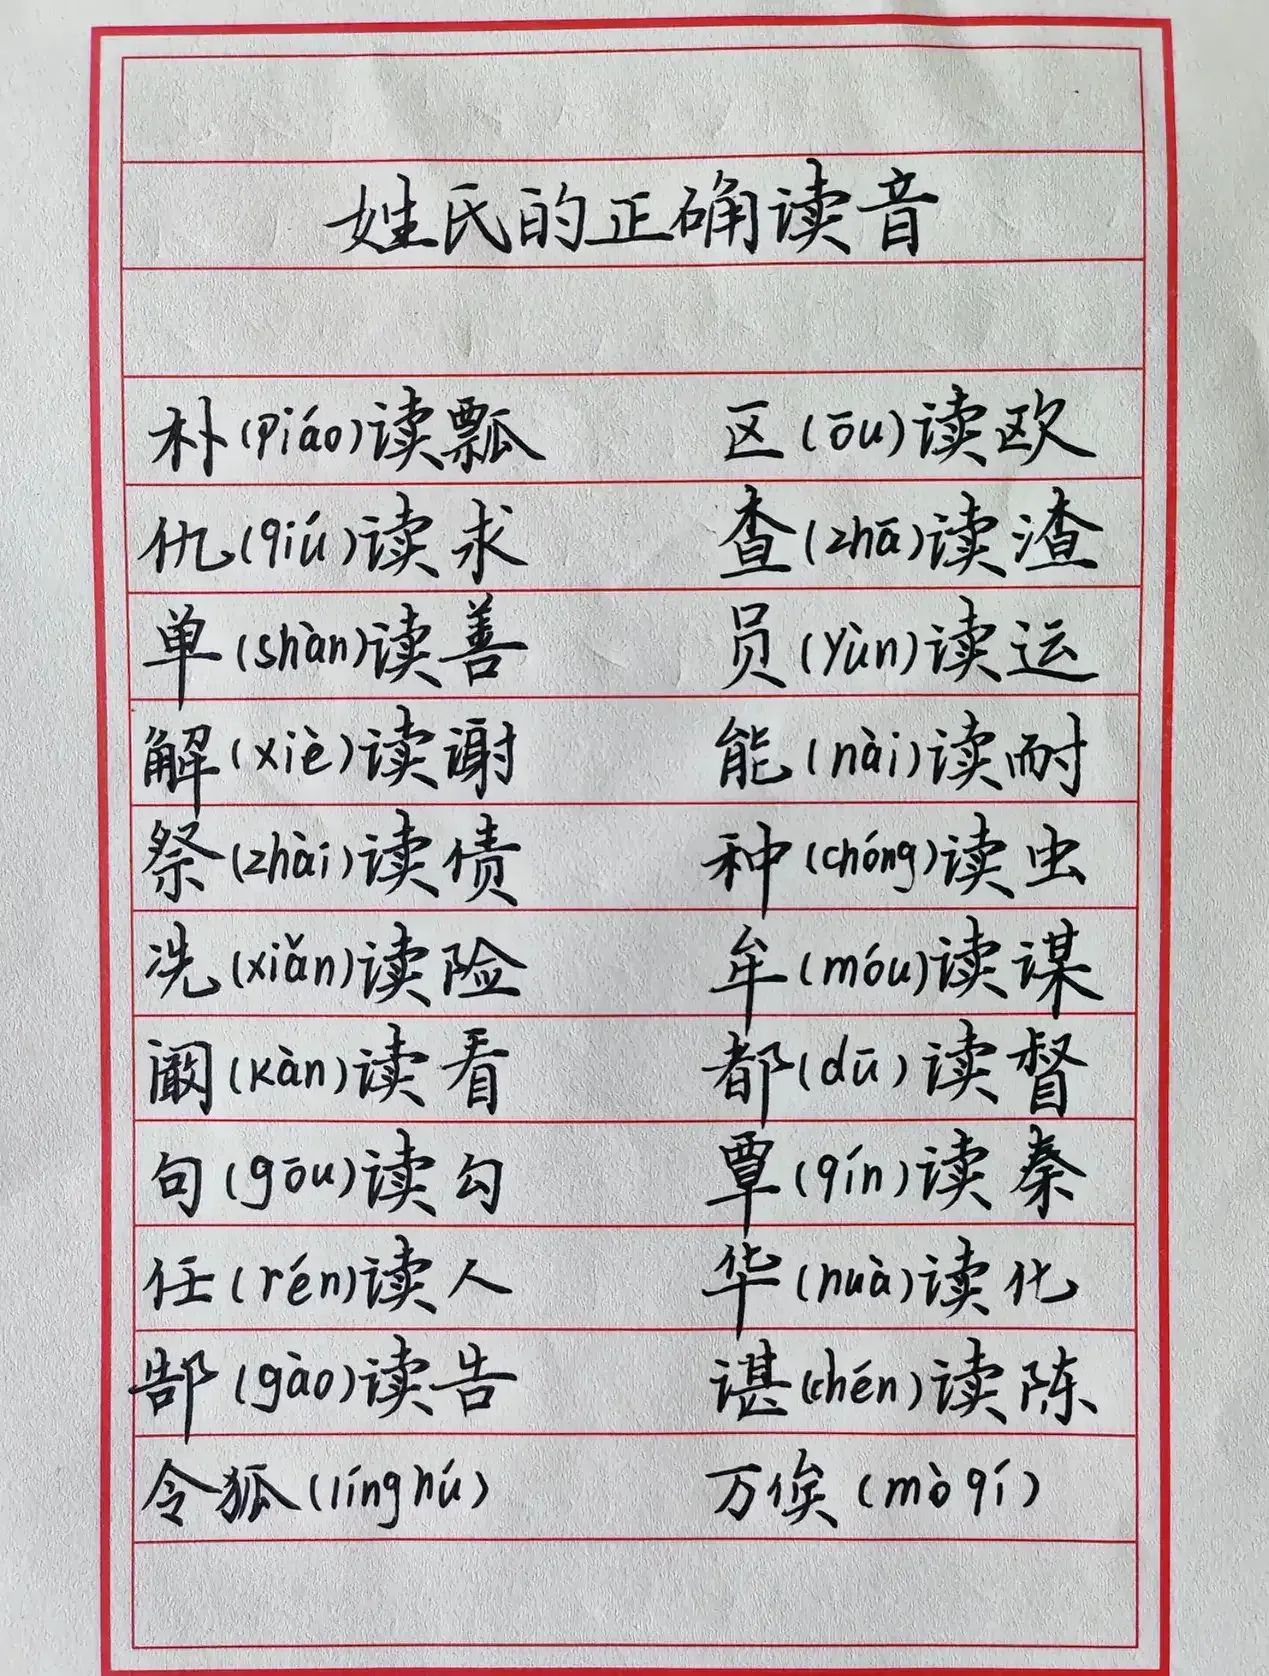 姓氏的正确读音
朴(piáo)读瓢 区(ōu)读欧
仇(qiú)读求 查(zhā)读渣
单(shàn)读善 员(yùn)读运
解(xiè)读谢 能(nài)读耐
祭(zhài)读债 种(chóng)读虫
冼(xiǎn)读险 牟(móu)读谋
阚(kàn)读看 都(dū)读督
句(gōu)读勾 覃(qín)读秦
任(rén)读人 华(huà)读化
郜(gào)读告 谌(chén)读陈
令狐(línghú) 万俟(mòqí)